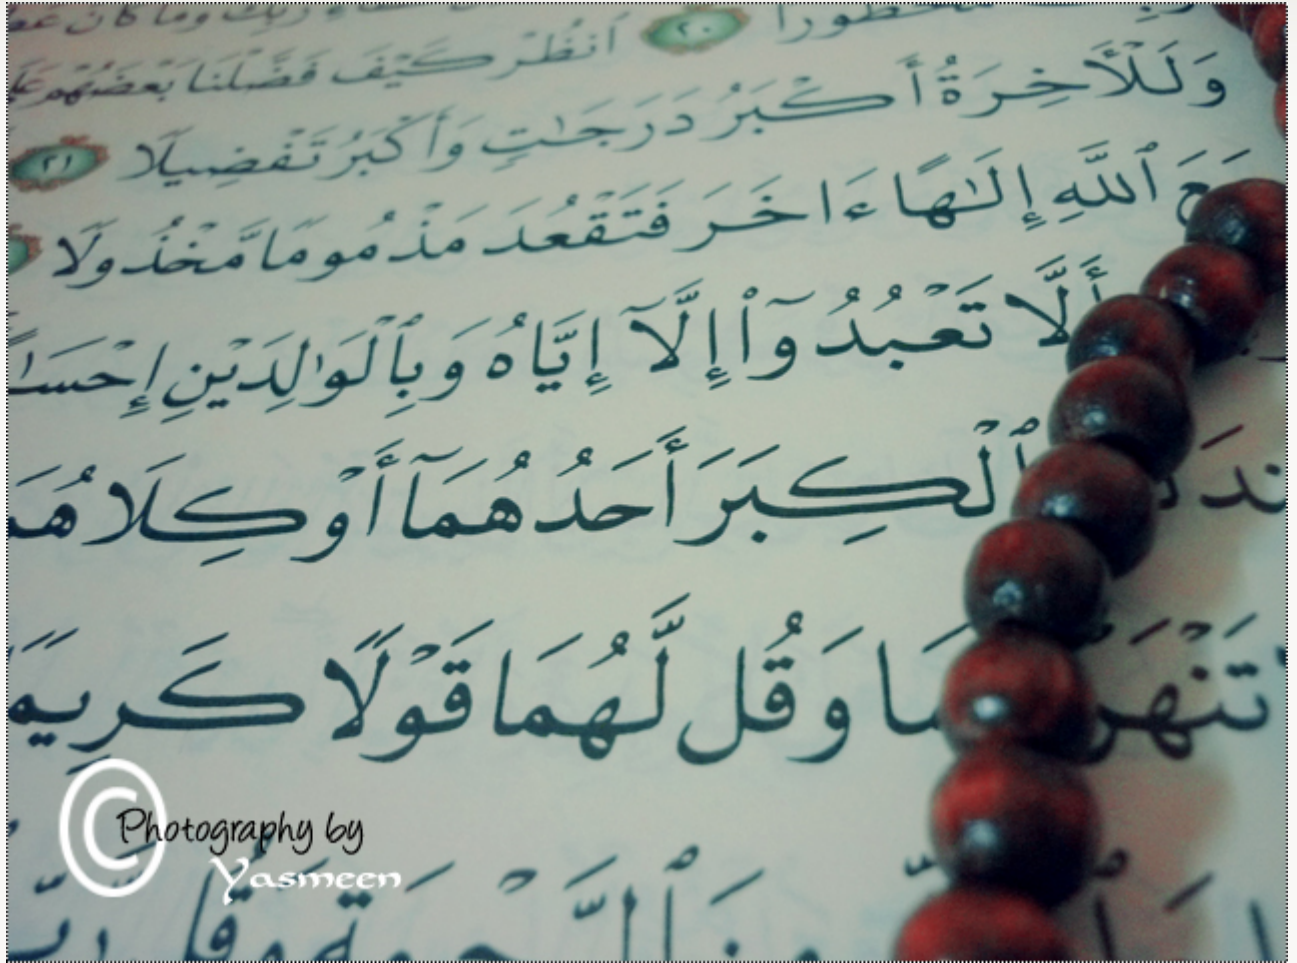 محظورا ٢٠ ٱنظُرْ كَيْفَ فَضَّلْنَا بَعْضَهُمْ
وَلَلْأٓخِرَةُ أَكْبَرُ دَرَجَٰتٍ وَأَكْبَرُ تَفْضِيلًا ٢١
ٱللَّهِ إِلَٰهًا ءَاخَرَ فَتَقْعُدَ مَذْمُومًا مَّخْذُولًا
أَلَّا تَعْبُدُوٓا۟ إِلَّآ إِيَّاهُ وَبِٱلْوَٰلِدَيْنِ
ٱلْكِبَرَ أَحَدُهُمَآ أَوْ كِلَاهُمَا
وَقُل لَّهُمَا قَوْلًا كَرِيمًا
Photography by
Yasmeen